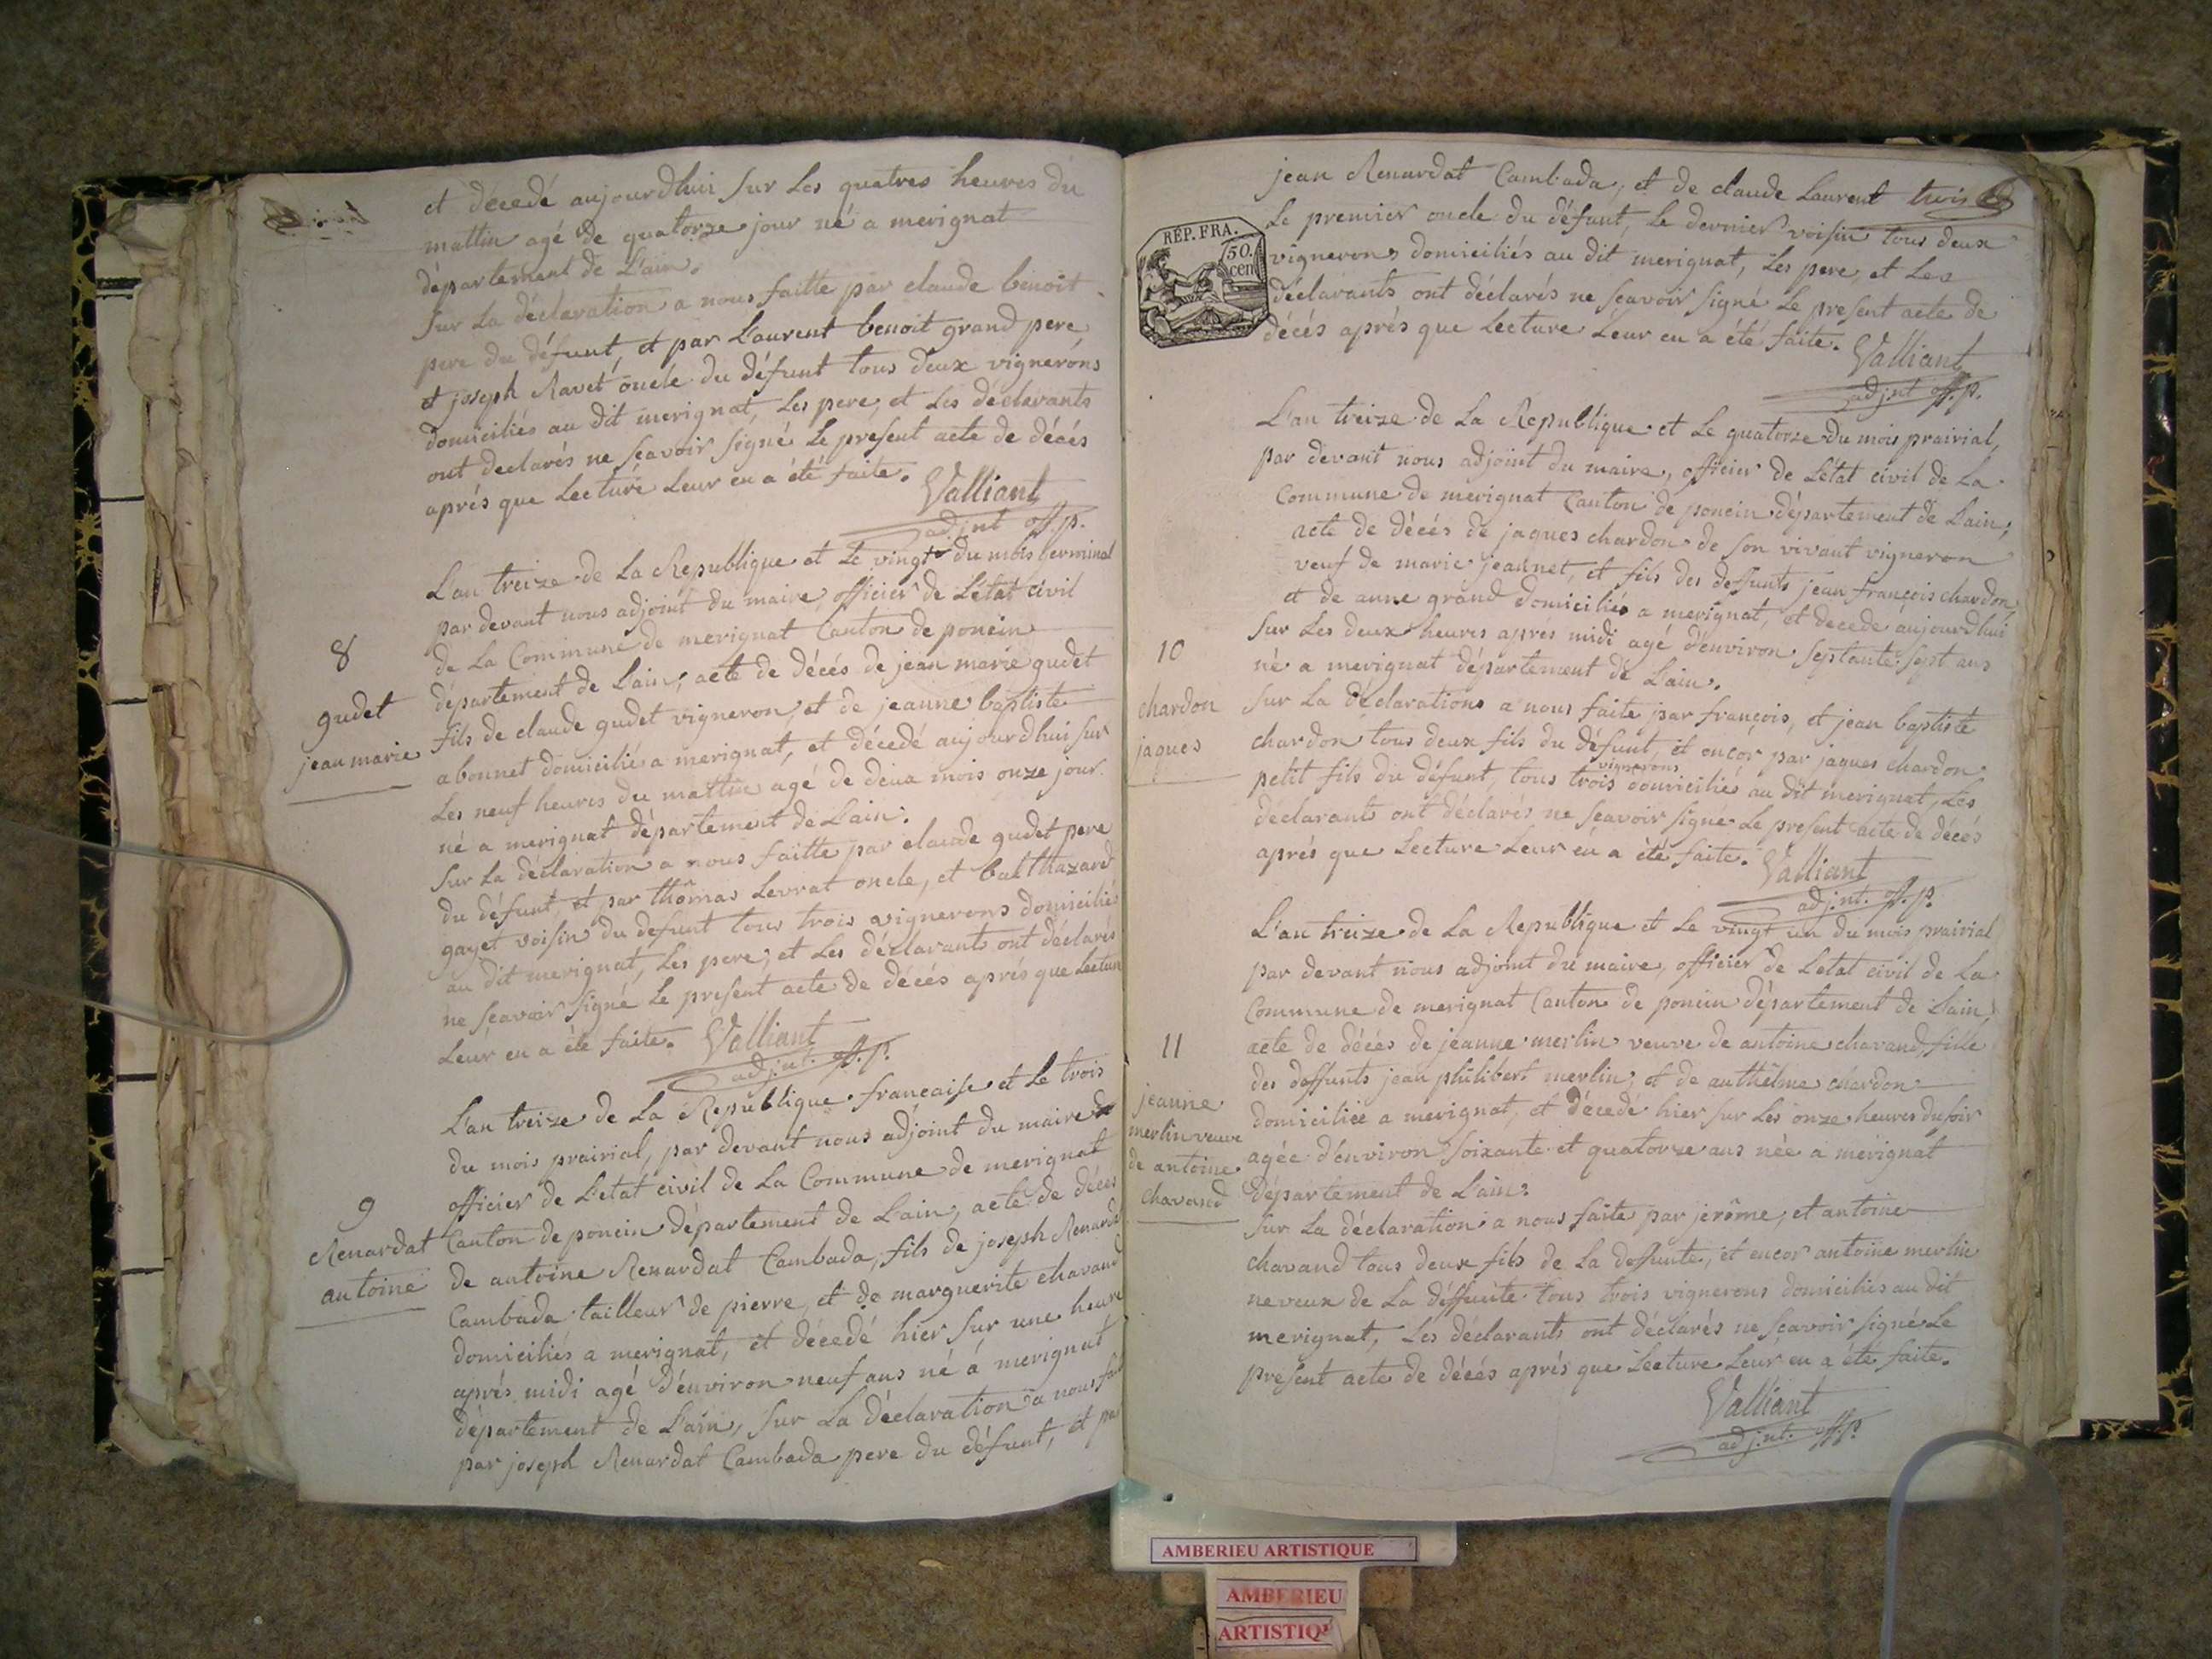 et décedé aujourdhui sur Les quatres heures du
mattin agé de quatorze jour né a merignat
département de L'ain.
Sur La déclaration a nous faitte par claude benoit
pere du défunt, et par Laurent benoit grand pere,
et joseph Ravet oncle du défunt tous deux vignerons
domiciliés au dit merignat, Les pere, et Les déclarants
ont declarés ne sçavoir signé Le present acte de décés
aprés que Lecture Leur en a été faite. Valliant
adj.nt off.p.
L'an treize de La Republique et Le vingt du mois germinal
par devant nous adjoint du maire, officier de L'état civil
de La Commune de merignat Canton de poncin
département de L'ain; acte de décés de jean marie gudet
fils de claude gudet vigneron, et de jeanne baptiste
abonnet domiciliés a merignat, et décedé aujourdhui sur
Les neuf heures du mattin agé de deux mois onze jour
né a merignat département de L'ain.
Sur La déclaration a nous faitte par claude gudet pere
du défunt, et par thômas Levrat oncle, et balthazard
gayet voisin du défunt tous trois vignerons domiciliés
au dit merignat, Les pere, et Les déclarants ont déclarés
ne sçavoir signé Le present acte de décés aprés que Lecture
Leur en a été faite. Valliant
adj.nt. off.p.
8
gudet
jean marie
L'an treize de La Republique française et Le trois
du mois prairial, par devant nous adjoint du maire
officier de L'etat civil de La Commune de merignat
Canton de poncin département de L'ain, acte de décés
de antoine Renardat Cambada, fils de joseph Renardat
Cambada tailleur de pierre, et de marguerite chavand
domiciliés a merignat, et décedé hier sur une heure
aprés midi agé d'environ neuf ans né à merignat
département de L'ain, sur La déclaration a nous fai
par joseph Renardat Cambada pere du défunt, et par
9
Renardat
antoine
jean Renardat Cambada, et de claude Laurent trois
Le premier oncle du défunt, Le dernier voisin tous deux
vignerons domiciliés au dit merignat, Les pere et Les
déclarants ont déclarés ne sçavoir signé Le present acte de
décés aprés que Lecture Leur en a été faite. Valliant
adj.nt off.p.
RÉP. FRA.
50.
cent
L'an treize de La Republique et Le quatorze du mois prairial,
par devant nous adjoint du maire, officier de L'état civil de La
Commune de merignat Canton de poncin département de L'ain;
acte de décés de jaques chardon de son vivant vigneron
veuf de marie jeannet, et fils des deffunts jean françois chardon,
et de anne grand domiciliés a merignat, et décedé aujourdhui
sur Les deux heures aprés midi agé d'environ septante sept ans
né a merignat département de L'ain.
Sur La déclarations a nous faite par françois, et jean baptiste
chardon tous deux fils du défunt, et encor par jaques chardon
petit fils du défunt, tous trois vignerons domiciliés au dit merignat, Les
déclarants ont déclarés ne sçavoir signe Le present acte de décés
aprés que Lecture Leur en a été faite. Valliant
adj.nt. off.p.
10
chardon
jaques
L'an treize de La Republique et Le vingt un du mois prairial
par devant nous adjoint du maire, officier de Letat civil de La
Commune de merignat Canton de poncin département de L'ain,
acte de décés de jeanne merlin veuve de antoine chavand, fille
des deffunts jean philibert merlin, et de anthelme chardon
domiciliée a merignat, et décedé hier sur Les onze heures du soir
agée d'environ soixante et quatorze ans née a merignat
département de L'ain.
Sur La déclaration a nous faite par jerôme, et antoine
chavand tous deux fils de La deffunte, et encor antoine merlin
neveux de La deffunte tous trois vignerons domiciliés au dit
merignat, Les déclarants ont déclarés ne sçavoir signé Le
present acte de décés aprés que Lecture Leur en a été faite.
Valliant
adj.nt. off.p.
11
jeanne
merlin veuve
de antoine
chavand
AMBERIEU ARTISTIQUE
AMBERIEU
ARTISTIQ